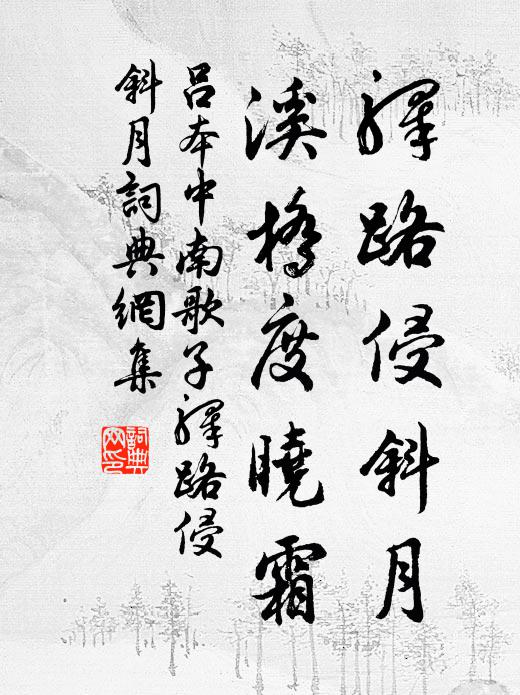 驛路侵斜月
溪橋度曉霜
呂本中南歌子驛路侵
斜月詞典網集
詞典
网印